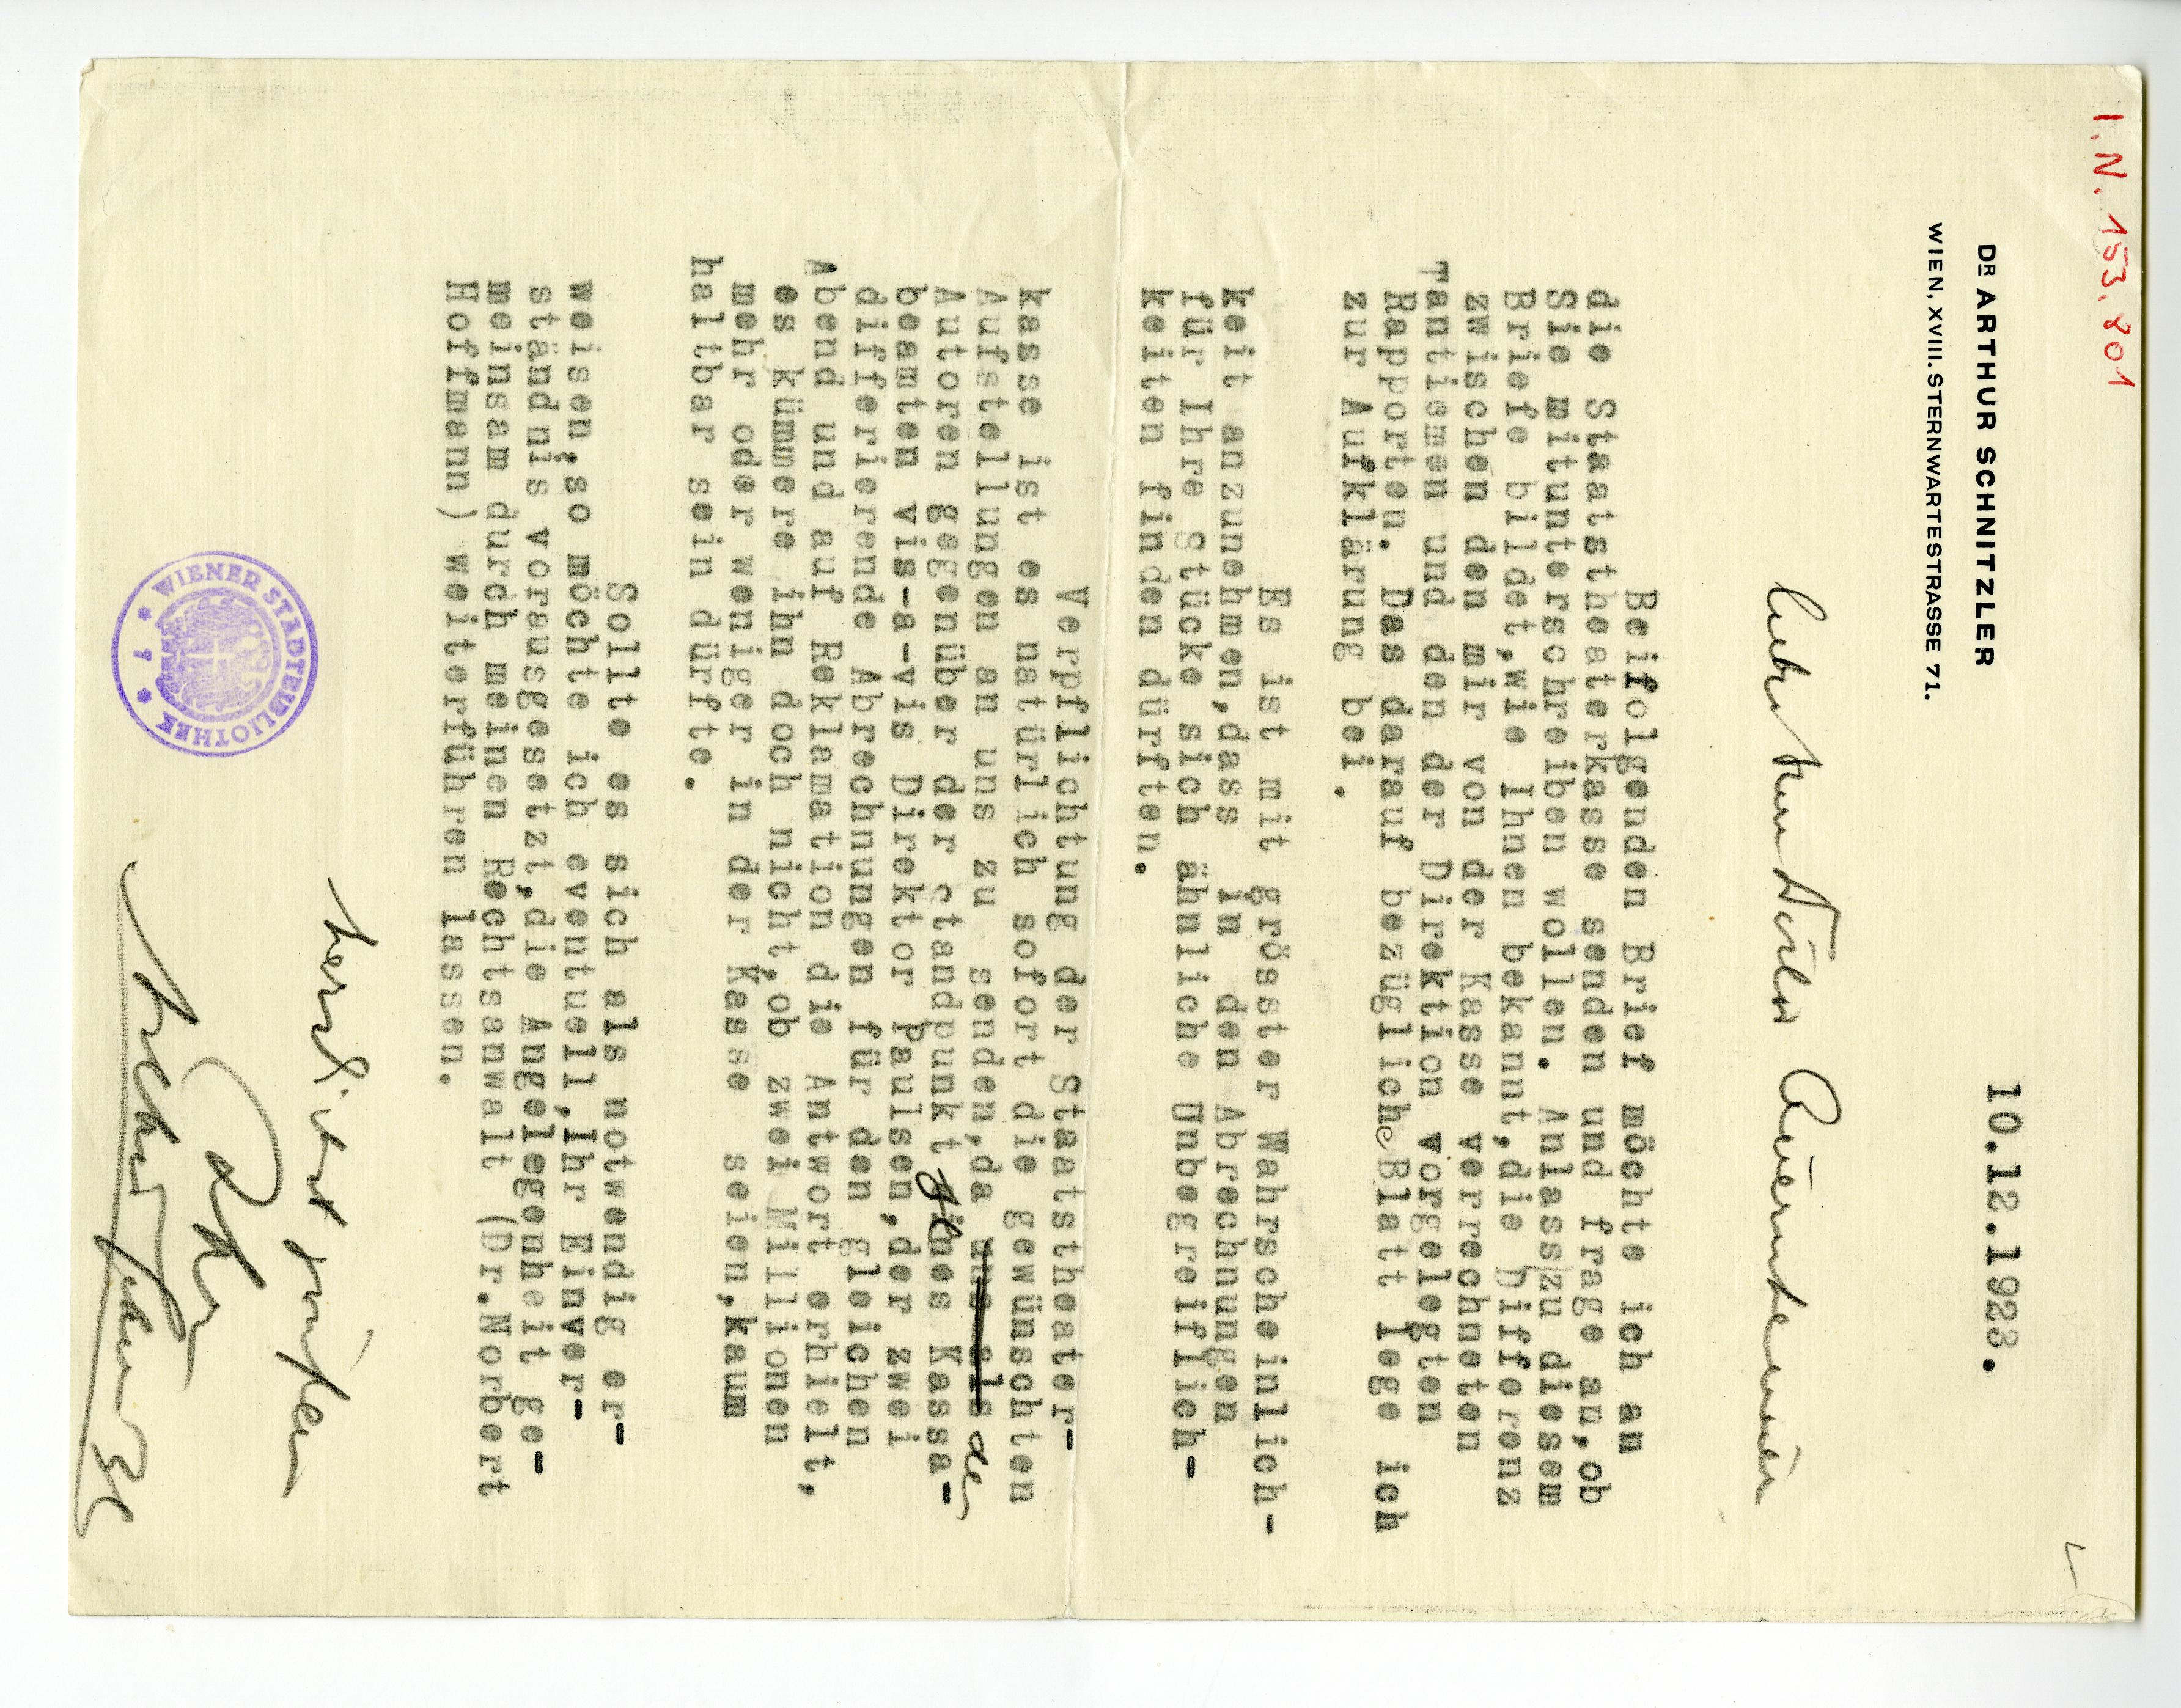 I.N. 153.801
DR ARTHUR SCHNITZLER
WIEN, XVIII. STERNWARTESTRASSE 71.
10.12.1923.
lieber Herr Doctor Auernheimer
Beifolgenden Brief möchte ich an
die Staatstheaterkasse senden und frage an,ob
Sie mitunterschreiben wollen. Anlass zu diesem
Briefe bildet,wie Ihnen bekannt,die Differenz
zwischen den mir von der Kasse verrechneten
Tantiemen und den der Direktion vorgelegten
Rapporten. Das darauf bezügliche Blatt lege ich
zur Aufklärung bei.
Es ist mit grösster Wahrscheinlich-
keit anzunehmen,dass in den Abrechnungen
für Ihre Stücke sich ähnliche Unbegreiflich-
keiten finden dürften.
Verpflichtung der Staatstheater-
kasse ist es natürlich sofort die gewünschten
Aufstellungen an uns zu senden,da uns als der
Autoren gegenüber der Standpunkt jenes Kassa-
beamten vis-a-vis Direktor Paulsen,der zwei
differierende Abrechnungen für den gleichen
Abend und auf Reklamation die Antwort erhielt,
es kümmere ihn doch nicht,ob zwei Millionen
mehr oder weniger in der Kasse seien,kaum
haltbar sein dürfte.
Sollte es sich als notwendig er-
weisen,so möchte ich eventuell,Ihr Einver-
ständnis vorausgesetzt,die Angelegenheit ge-
meinsam durch meinen Rechtsanwalt (Dr.Norbert
Hoffmann) weiterführen lassen.
herzlichst
Ihr
Arthur Schnitzler
WIENER STADTBIBLIOTHEK